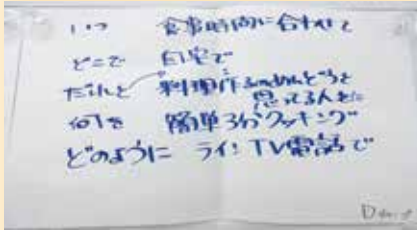 いつ 食事時間に合わせて
どこで 自宅で
だれと 料理作るのめんどうと
思ってる人とに
何を 簡単3分クッキング
どのように ライ! TV電話で